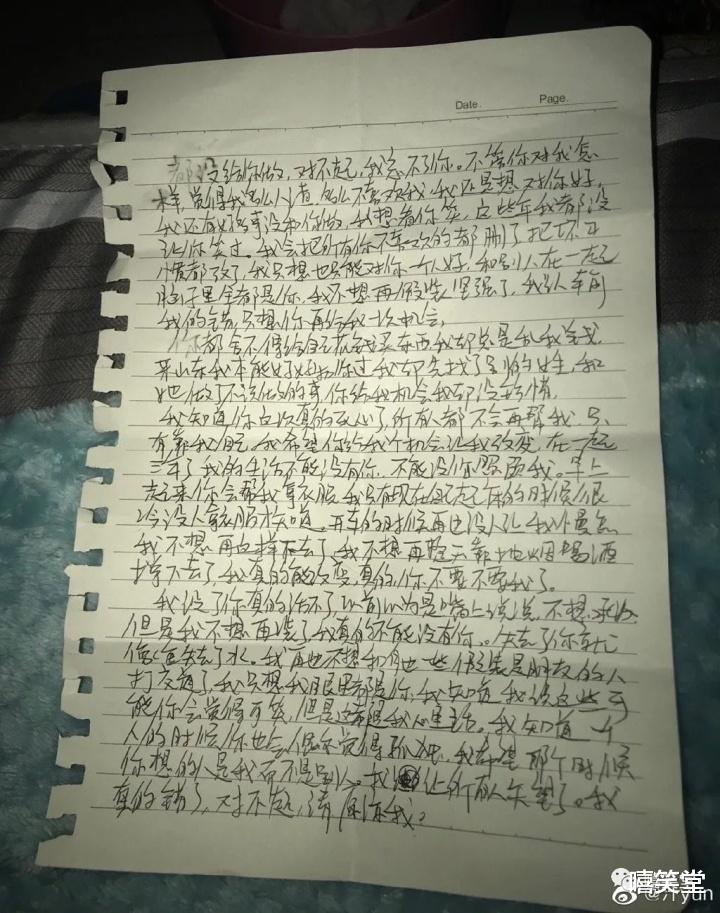 Date. Page.
都没给你做，对不起，我忘不了你。不管你对我怎
样觉得我多么讨厌，多么不喜欢我，我还是想对你好，
我还有好多事没和你做，我想看你笑，这些年我都没
让你笑过，我会把所有你不喜欢的都删了把坏习
惯都改了，我只想也只能对你一个人好，和别人在一起
脑子里全都是你，我不想再假装坚强了，我认
我的错只想你再给我一次机会，
你都舍不得给自己花钱买东西我却总是乱我
来山东我本能好好和你过我却去找了别的女生，和
她做了不该做的事你给我机会我却没珍惜
我知道你这次真的死心了，所有人都不会再帮我，只
有靠我自己，我希望你给我个机会让我改变，在一起
三年了我的生活不能没有你，不能没你照顾我。早上
起来你会帮我拿衣服，我只有现在自己起床的时候很
冷没人拿衣服才知道，开车的时候再也没人让我慢点
我不想再这样下去了，我不想再整天靠抽烟喝酒
撑下去了，我真的能改变，真的，你不要不要我了。
我没了你真的活不了，以前以为是嘴上说说，不想承认
但是我不想再装了我真的不能没有你。失去了你就
像鱼失去了水。我再也不想和其他一些假装是朋友的人
打交道了，我只想我眼里都是你，我知道我说这些可
能你会觉得可笑，但是这都是我心里话，我知道一个
人的时候你也会偶尔觉得孤独，我希望那个时候
你想的人是我而不是别人。我让所有人失望了。我
真的错了，对不起，请原谅我。
嘻笑堂
yun